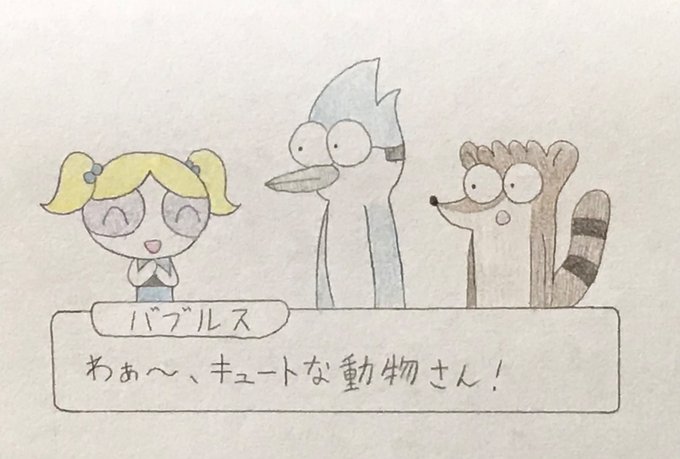 バブルス
わぁ〜、キュートな動物さん!